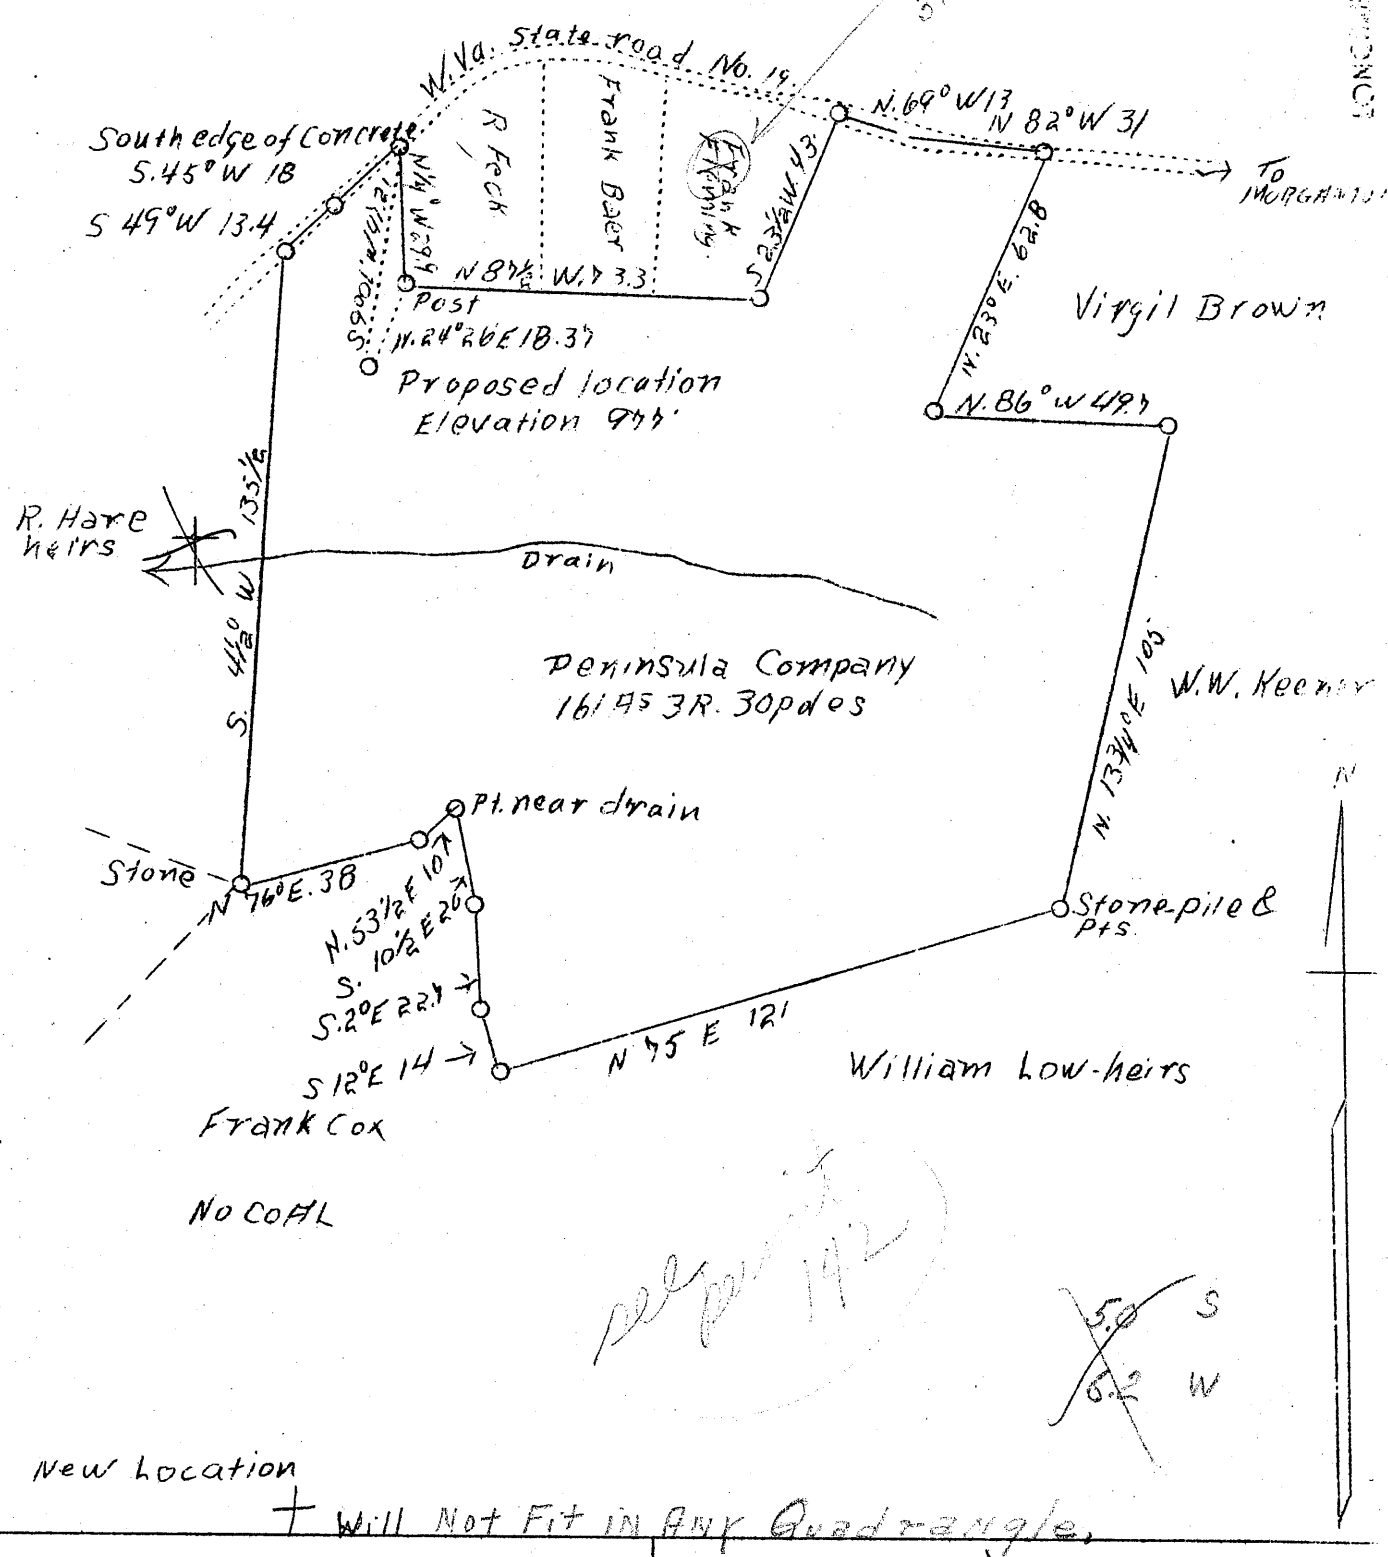 W.Va. State road No. 19.
South edge of Concrete
S.45° W 18
S 49° W 13.4
N. 69° W 13
N 82° W 31
To
R Feck
Frank Baer
Frank
S 23½ W. 43.
N 87½ W. 73.3
Post
N. 24° 26 E 18.37
Proposed location
Elevation 977'
N. 23° E. 62.8
Virgil Brown
N. 86° W 49.7
R. Hare
heirs
S. 4½° W 135½
Drain
Peninsula Company
161 As 3R. 30 poles
N. 13¾° E 105
W.W. Keener
N
Pt. near drain
Stone
N 76° E. 38
N. 53½ E 10
S. 10½ E 26
S. 2° E 22.7
S 12° E 14
Stone-pile &
Pts.
N 75 E 121
William Low-heirs
Frank Cox
No COAL
142
5.0 S
6.2 W
New Location
Will Not Fit in Any Quadrangle.